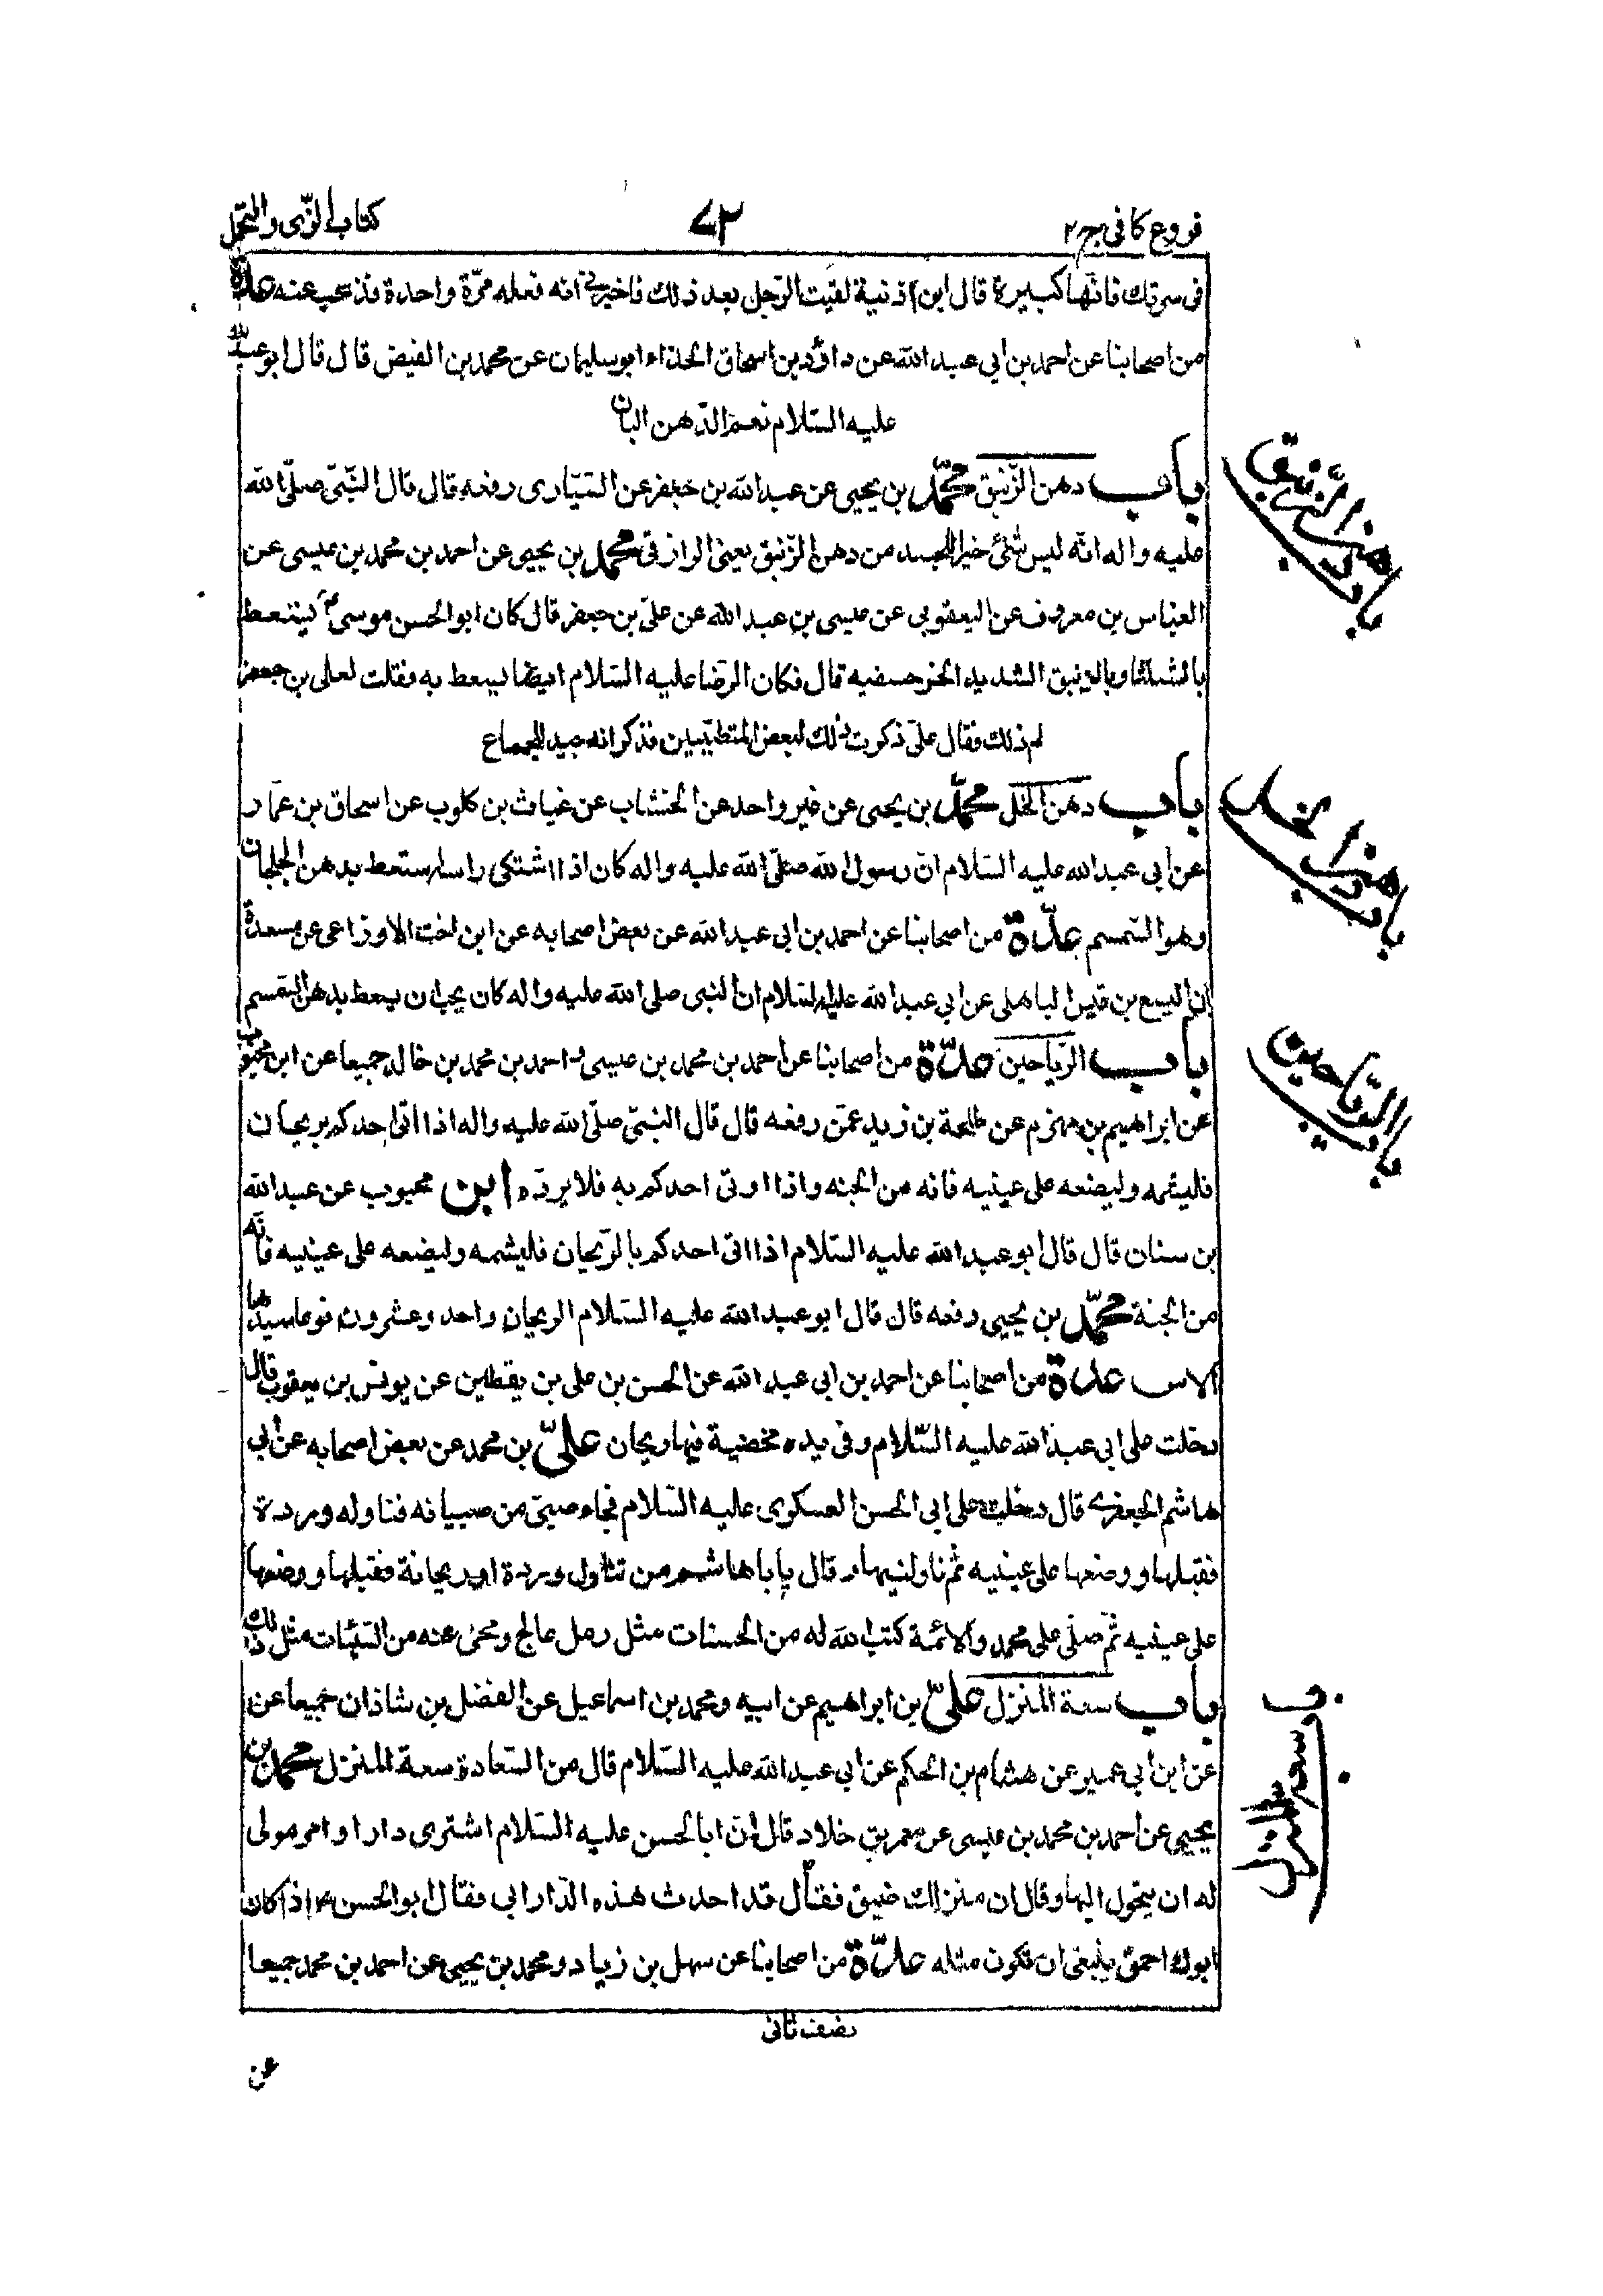 فروع كافى ج٢
٧٢
كتاب الزّى والتجمّل
فى سرتك فانّها كبيرة قال ابن اذنية لقيت الرّجل بعد ذلك فاخبرنى انه فعله مرّة واحدة فذهب عنه عدّة
من اصحابنا عن احمد بن ابى عبد الله عن داؤد بن اسحاق الحذاء ابو سليمان عن محمد بن الفيض قال قال ابو عبد الله
عليه السّلام نعم الدّهن البان
باب دهن الزّنبق محمّد بن يحيى عن عبد الله بن جعفر عن السّيّارى رفعه قال قال النّبىّ صلّى الله
عليه واله انّه ليس شئ خير للجسد من دهن الزّنبق يعنى الرازقى محمّد بن يحيى عن احمد بن محمد بن عيسى عن
العبّاس بن معروف عن اليعقوبى عن عيسى بن عبد الله عن علىّ بن جعفر قال كان ابو الحسن موسى ع يستعط
بالشلثا وبالزنبق الشديد الحر حسفيه قال فكان الرّضا عليه السّلام ايضا يسعط به فقلت لعلى بن جعفر
لم ذلك فقال علىّ ذكرت ذلك لبعض المتطبّبين فذكر انه جيد للجماع
باب دهن الحلّ محمّد بن يحيى عن غير واحد عن الخشاب عن غياث بن كلوب عن اسحاق بن عمّار
عن ابى عبد الله عليه السّلام انّ رسول الله صلّى الله عليه واله كان اذا اشتكى راسه استعط بدهن الجلجلان
وهو السّمسم عدّة من اصحابنا عن احمد بن ابى عبد الله عن بعض اصحابه عن ابن اخت الاوزاعى عن مسعدة
ابن اليسع بن قيس الباهلى عن ابى عبد الله عليه السّلام ان النبى صلى الله عليه واله كان يحب ان يسعط بدهن السّمسم
باب الرّياحين عدّة من اصحابنا عن احمد بن محمد بن عيسى و احمد بن محمد بن خالد جميعا عن ابن محبوب
عن ابراهيم بن مهزم عن طلحة بن زيد عمّن رفعه قال قال النبىّ صلّى الله عليه واله اذا اتى احدكم بريحان
فليشمه وليضعه على عينيه فانه من الجنه واذا اوتى احدكم به فلا يردّه ابن محبوب عن عبد الله
بن سنان قال قال ابو عبد الله عليه السّلام اذا اتى احدكم بالرّيحان فليشمه وليضعه على عينيه فانّه
من الجنة محمّد بن يحيى رفعه قال قال ابو عبد الله عليه السّلام الريحان واحد وعشرون نوعا سيدها
الاس عدّة من اصحابنا عن احمد بن ابى عبد الله عن الحسن بن على بن يقطين عن يونس بن يعقوب قال
دخلت على ابى عبد الله عليه السّلام وفى يده مخضبة فيها ريحان علىّ بن محمد عن بعض اصحابه عن ابى
هاشم الجعفرى قال دخلت على ابى الحسن العسكرى عليه السّلام فجاء صبىّ من صبيانه فناوله وردة
فقبلها ووضعها على عينيه ثم ناولنيها و قال يا باهاشم من تناول وردة او ريحانة فقبلها ووضعها
على عينيه ثمّ صلّى على محمد والائمة كتب الله له من الحسنات مثل رمل عالج ومحى عنه من السّيّئات مثل ذلك
باب سعة المنزل علىّ بن ابراهيم عن ابيه ومحمد بن اسماعيل عن الفضل بن شاذان جميعا عن
عن ابن ابى عمير عن هشام بن الحكم عن ابى عبد الله عليه السّلام قال من السّعادة سعة المنزل محمّد بن
يحيى عن احمد بن محمد بن عيسى عن معمر بن خلاد قال انّ ابا الحسن عليه السّلام اشترى دارا وامر مولى
له ان يتحول اليها وقال ان منزلك ضيق فقال قد احدث هذه الدّار ابى فقال ابو الحسن ع اذا كان
ابوك احمق ينبغى ان تكون مثله عدّة من اصحابنا عن سهل بن زياد و محمد بن يحيى عن احمد بن محمد جميعا
نصف ثانى
عن
باب دهن الزّنبق
باب دهن الحل
باب الرّياحين
ب سعة المنزل